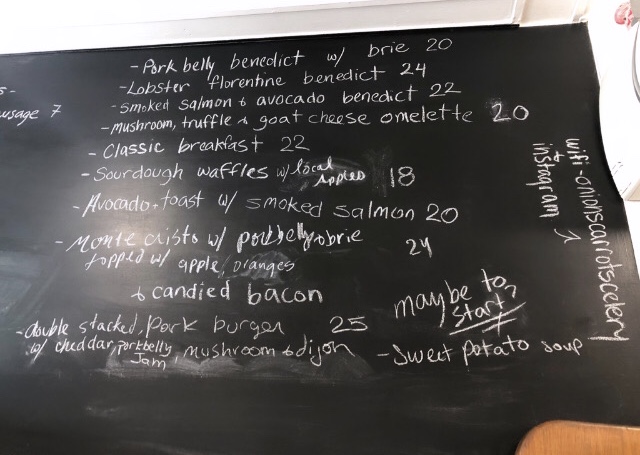 - Pork belly benedict w/ brie 20
- Lobster florentine benedict 24
- smoked salmon & avocado benedict 22
- mushroom, truffle & goat cheese omelette 20
usage 7
- Classic breakfast 22
- Sourdough waffles w/ local apples 18
- Avocado toast w/ smoked salmon 20
- Monte cristo w/ porkbelly & brie 24
topped w/ apple, oranges
& candied bacon
- double stacked, Pork burger 25
w/ cheddar, porkbelly Jam, mushroom & dijon
maybe to start?
- Sweet potato soup
wifi - onionscarrotscelery
+ instagram